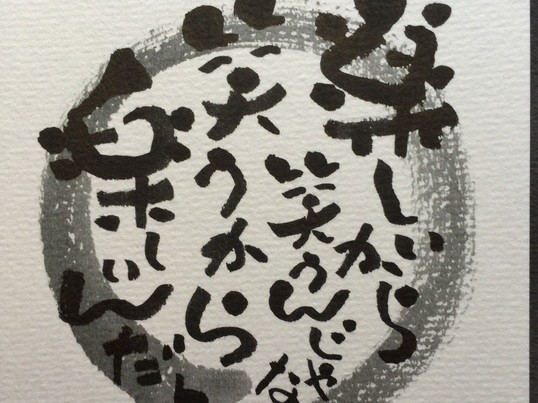 楽しいから
笑うんじゃな
笑うから
楽しいんだ